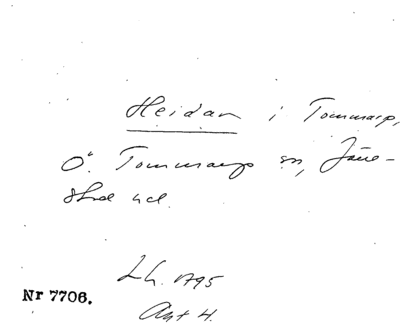 Heidan i Tommarp,
Ö. Tommarps sn, Järre-
stad hd.
Lh. 1795
Nr 7706.
Akt 4.